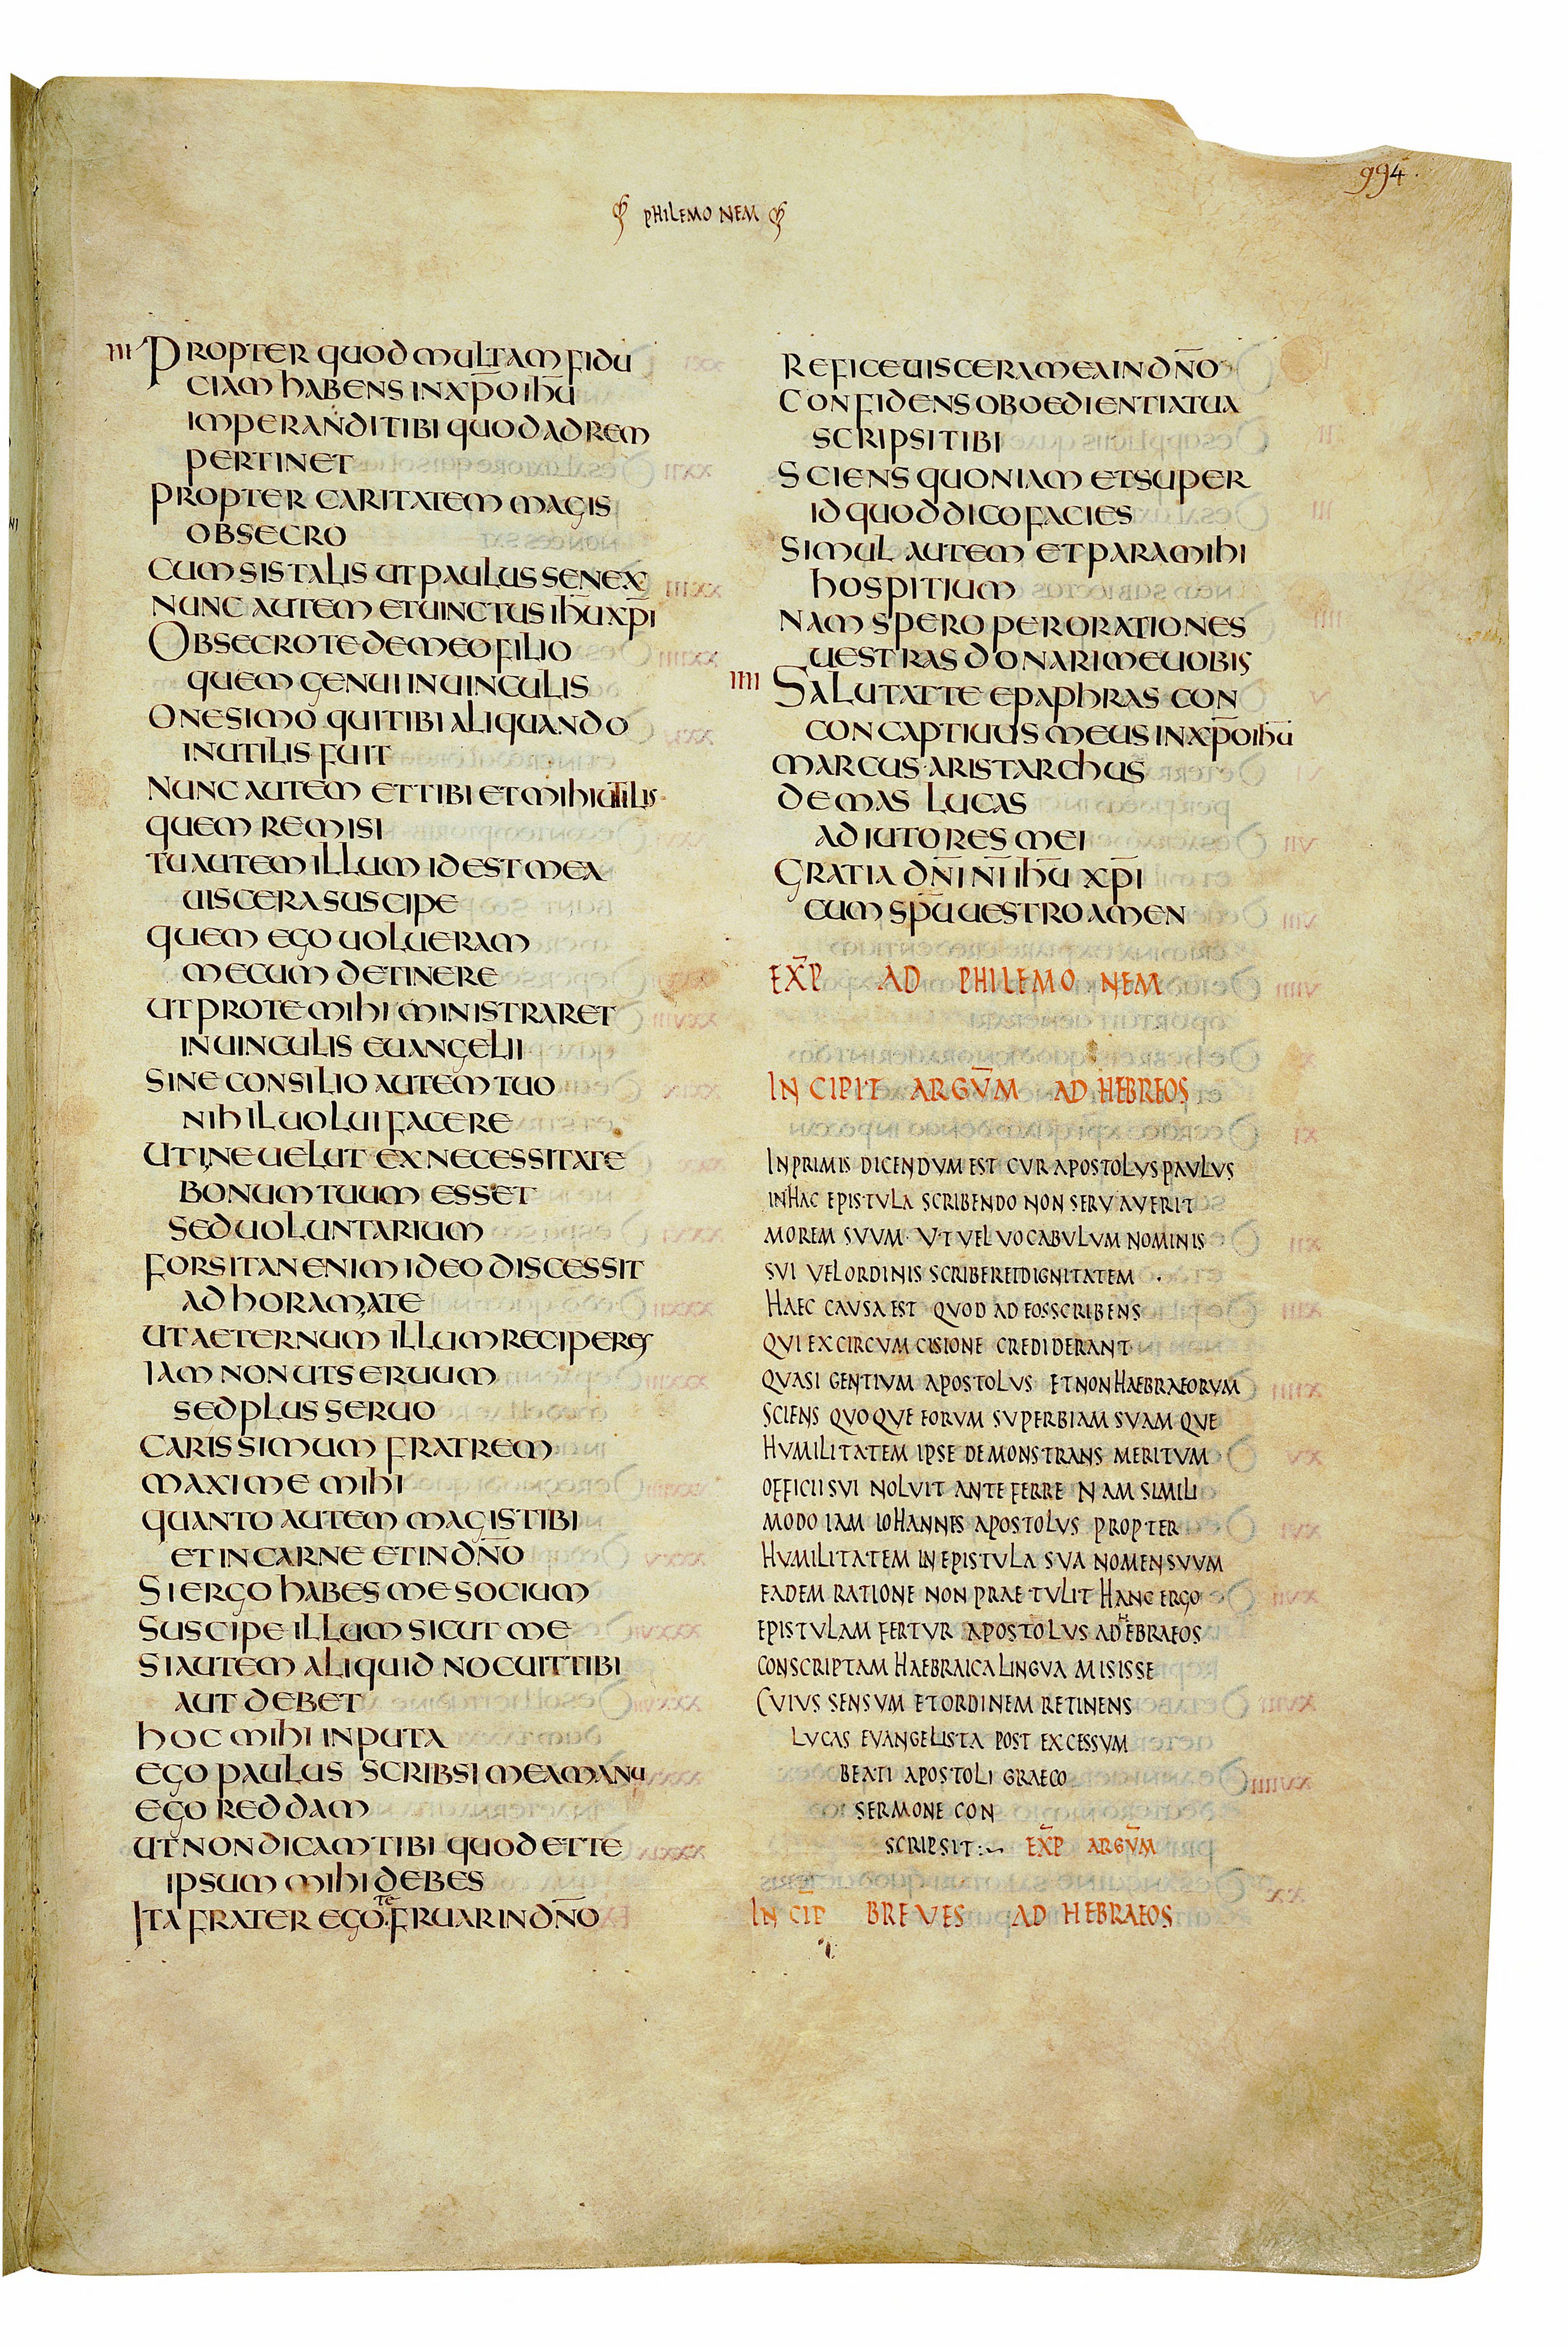 994
PHILEMONEM
III PROPTER QUOD MULTAM FIDU
CIAM HABENS IN XP̅O IHU̅
IMPERANDI TIBI QUOD AD REM
PERTINET
PROPTER CARITATEM MAGIS
OBSECRO
CUM SIS TALIS UT PAULUS SENEX
NUNC AUTEM ET UINCTUS IHU̅ XP̅I
OBSECRO TE DE MEO FILIO
QUEM GENUI IN UINCULIS
ONESIMO QUI TIBI ALIQUANDO
INUTILIS FUIT
NUNC AUTEM ET TIBI ET MIHI UTILIS
QUEM REMISI
TU AUTEM ILLUM ID EST MEA
UISCERA SUSCIPE
QUEM EGO UOLUERAM
MECUM DETINERE
UT PRO TE MIHI MINISTRARET
IN UINCULIS EUANGELII
SINE CONSILIO AUTEM TUO
NIHIL UOLUI FACERE
UTI NE UELUT EX NECESSITATE
BONUM TUUM ESSET
SED UOLUNTARIUM
FORSITAN ENIM IDEO DISCESSIT
AD HORAM A TE
UT AETERNUM ILLUM RECIPERES
IAM NON UT SERUUM
SED PLUS SERUO
CARISSIMUM FRATREM
MAXIME MIHI
QUANTO AUTEM MAGIS TIBI
ET IN CARNE ET IN DN̅O
SI ERGO HABES ME SOCIUM
SUSCIPE ILLUM SICUT ME
SI AUTEM ALIQUID NOCUIT TIBI
AUT DEBET
HOC MIHI INPUTA
EGO PAULUS SCRIBSI MEA MANU
EGO REDDAM
UT NON DICAM TIBI QUOD ET TE
IPSUM MIHI DEBES
ITA FRATER EGO TE FRUAR IN DN̅O
REFICE UISCERA MEA IN DN̅O
CONFIDENS OBOEDIENTIA TUA
SCRIPSI TIBI
SCIENS QUONIAM ET SUPER
ID QUOD DICO FACIES
SIMUL AUTEM ET PARA MIHI
HOSPITIUM
NAM SPERO PER ORATIONES
UESTRAS DONARI ME UOBIS
IIII SALUTAT TE EPAPHRAS CON
CONCAPTIUUS MEUS IN XP̅O IHU̅
MARCUS ARISTARCHUS
DEMAS LUCAS
ADIUTORES MEI
GRATIA DN̅I NI̅ IHU̅ XP̅I
CUM SPU̅ UESTRO AMEN
EXP̅ AD PHILEMONEM
INCIPIT ARGVM̅ AD HEBREOS
INPRIMIS DICENDVM EST CVR APOSTOLVS PAVLVS
IN HAC EPISTVLA SCRIBENDO NON SERVAVERIT
MOREM SVVM · VT VEL VOCABVLVM NOMINIS
SVI VEL ORDINIS SCRIBERET DIGNITATEM ·
HAEC CAVSA EST QVOD AD EOS SCRIBENS
QVI EX CIRCVMCISIONE CREDIDERANT
QVASI GENTIVM APOSTOLVS ET NON HAEBRAEORVM
SCIENS QVOQVE EORVM SVPERBIAM SVAMQVE
HVMILITATEM IPSE DEMONSTRANS MERITVM
OFFICII SVI NOLVIT ANTEFERRE NAM SIMILI
MODO IAM IOHANNES APOSTOLVS PROPTER
HVMILITATEM IN EPISTVLA SVA NOMEN SVVM
EADEM RATIONE NON PRAETVLIT HANC ERGO
EPISTVLAM FERTVR APOSTOLVS AD HEBRAEOS
CONSCRIPTAM HAEBRAICA LINGVA MISISSE
CVIVS SENSVM ET ORDINEM RETINENS
LVCAS EVANGELISTA POST EXCESSVM
BEATI APOSTOLI GRAECO
SERMONE CON
SCRIPSIT:~ EXP̅ ARGVM̅
INCIP̅ BREVES AD HEBRAEOS